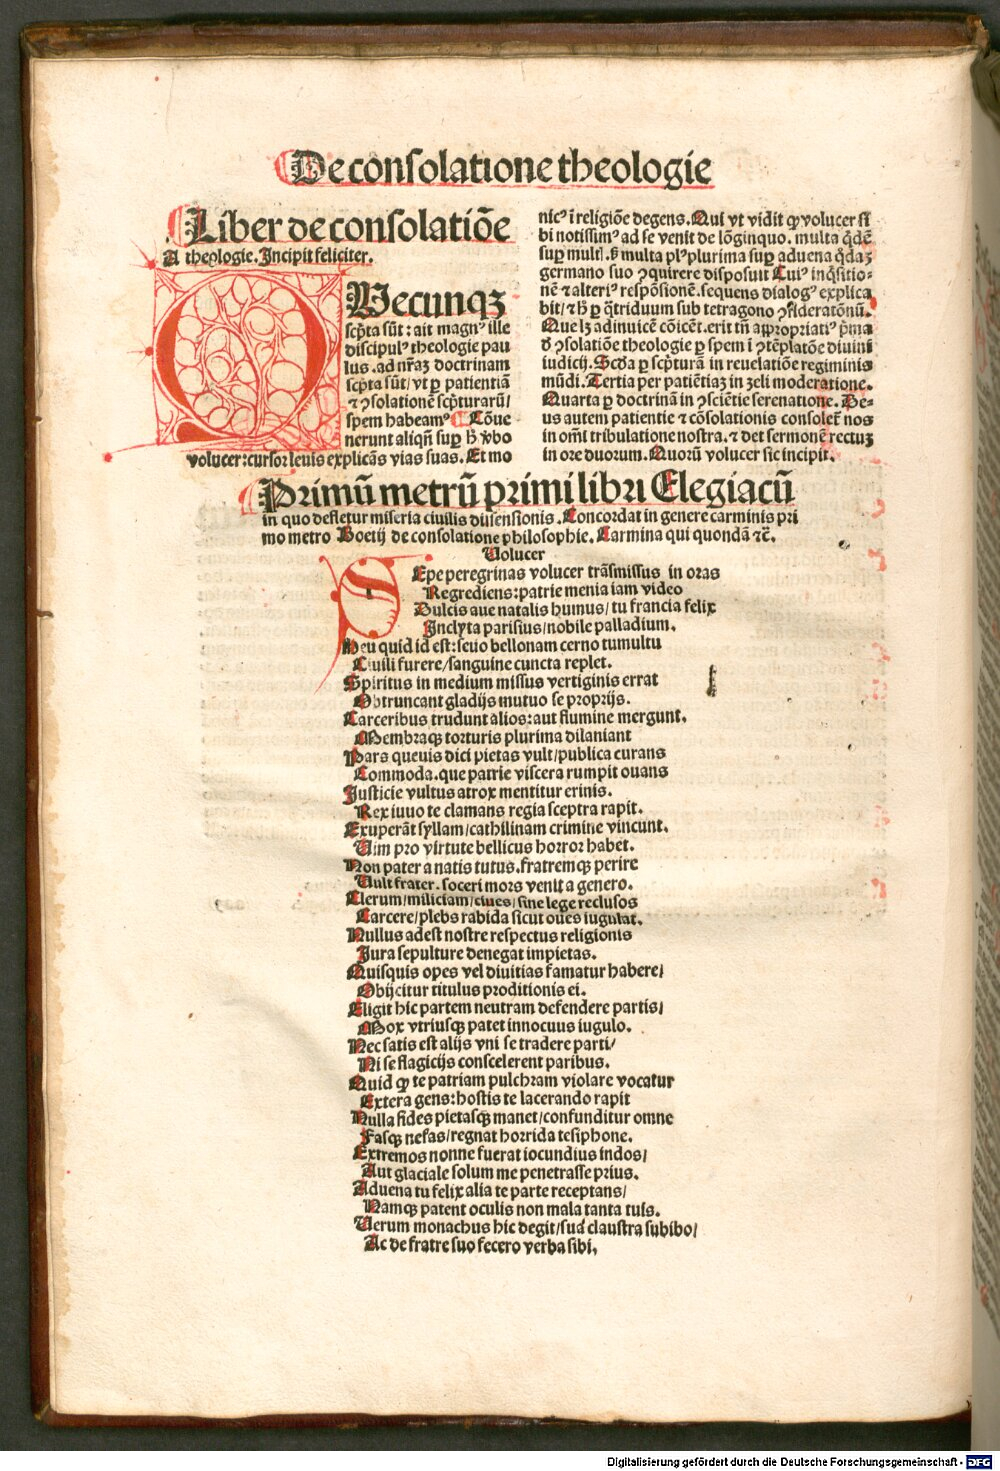 De consolatione theologie
Liber de consolatiōe
theologie. Incipit feliciter.
Uecunqʒ
scp̄ta sūt: ait magnꝰ ille
discipulꝰ theologie pau
lus. ad nr̄aʒ doctrinam
scp̄ta sūt/ vt ꝑ patientiā
⁊ ꝯsolationē scp̄turarū/
spem habeamꝰ Cōue
nerunt aliqn̄ suꝑ h̄ v̾bo
volucer: cursor leuis explicās vias suas. Et mo
nicꝰ ī religiōe degens. Qui vt vidit ꝙ volucer si
bi notissimꝰ ad se venit de lōginquo. multa q̄dē
suꝑ multꝭ. sꝫ multa plꝰ plurima suꝑ aduena q̄daʒ
germano suo ꝯquirere disposuit Cuiꝰ inq̄sitio-
nē ⁊ alteriꝰ respōsionē. sequens dialogꝰ explica
bit/ ⁊ h̄ ꝑ q̄triduum sub tetragono ꝯsideratōnū.
Que lʒ adinuicē cōicēt. erit tn̄ appropriatiꝰ p̄ma
ꝺ ꝯsolatiōe theologie ꝑ spem ī ꝯtēplatōe diuini
iudicij. Scd̄a ꝑ scp̄turam in reuelatiōe regiminis
mūdi. Tertia per patiētiaʒ in zeli moderatione.
Quarta ꝑ doctrinā in ꝯsciētie serenatione. De-
us autem patientie ⁊ cōsolationis consolet̄ nos
in om̄i tribulatione nostra. ⁊ det sermonē rectuʒ
in ore duorum. Quorū volucer sic incipit.
Primū metrū primi libri Elegiacū
in quo defletur miseria ciuilis dissensionis. Concordat in genere carminis pri
mo metro Boetij de consolatione philosophie. Carmina qui quondā ⁊c̄.
Uolucer
Sepe peregrinas volucer trāsmissus in oras
Regrediens: patrie menia iam video
Dulcis aue natalis humus/ tu francia felix
Inclyta parisius/ nobile palladium.
Heu quid id est: seuo bellonam cerno tumultu
Ciuili furere/ sanguine cuncta replet.
Spiritus in medium missus vertiginis errat
Obtruncant gladijs mutuo se proprijs.
Carceribus trudunt alios: aut flumine mergunt.
Membraqʒ torturis plurima dilaniant
Pars queuis dici pietas vult/ publica curans
Commoda. que patrie viscera rumpit ouans
Justicie vultus atrox mentitur erinis.
Rex iuuo te clamans regia sceptra rapit.
Exuperāt syllam/ cathilinam crimine vincunt.
Uim pro virtute bellicus horror habet.
Non pater a natis tutus. fratremqʒ perire
Uult frater. soceri mors venit a genero.
Clerum/ miliciam/ ciues/ sine lege reclusos
Carcere/ plebs rabida sicut oues iugulat.
Nullus adest nostre respectus religionis
Jura sepulture denegat impietas.
Quisquis opes vel diuitias famatur habere/
Obijcitur titulus proditionis ei.
Eligit hic partem neutram defendere partis/
Mox vtriusqʒ patet innocuus iugulo.
Nec satis est alijs vni se tradere parti/
Ni se flagicijs conscelerent paribus.
Quid ꝙ te patriam pulchram violare vocatur
Extera gens: hostis te lacerando rapit
Nulla fides pietasqʒ manet/ confunditur omne
Fasqʒ nefas/ regnat horrida tesiphone.
Extremos nonne fuerat iocundius indos/
Aut glaciale solum me penetrasse prius.
Aduena tu felix alia te parte receptans/
Namqʒ patent oculis non mala tanta tuis.
Uerum monachus hic degit/ sua claustra subibo/
Ac de fratre suo fecero verba sibi.
Digitalisierung gefördert durch die Deutsche Forschungsgemeinschaft - DFG